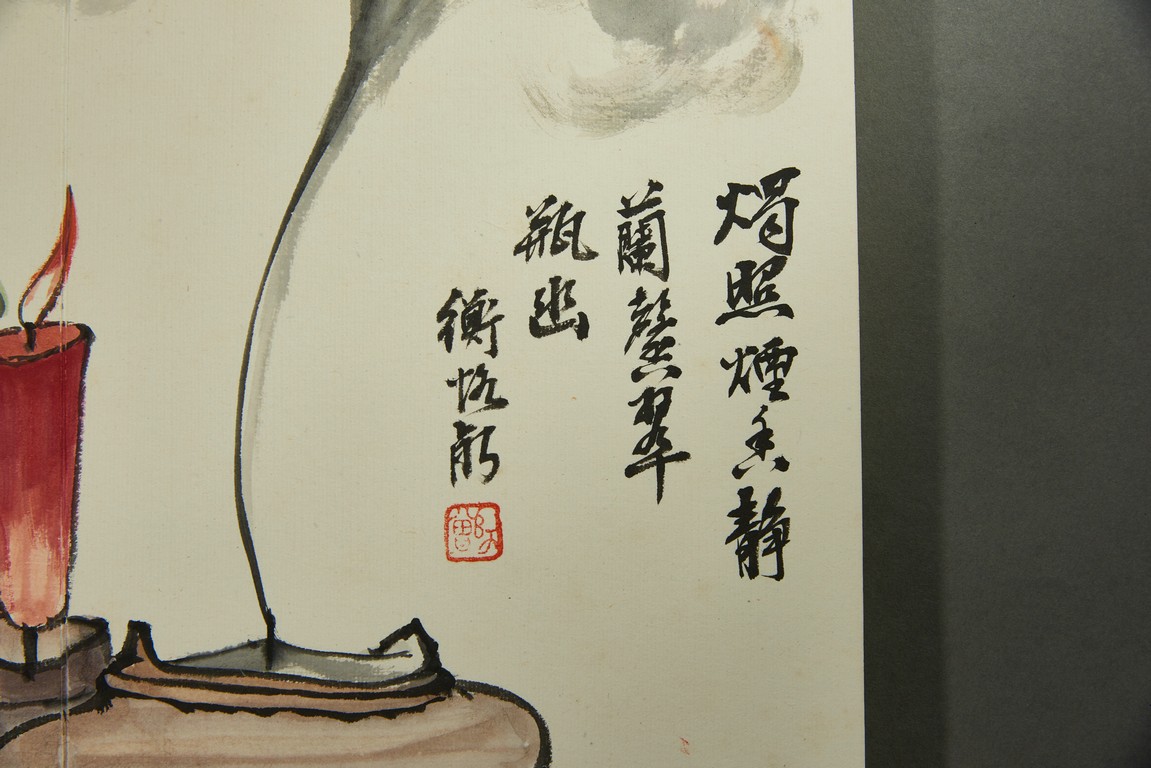 燭照煙香靜
蘭馨翠
瓶幽
衡恪